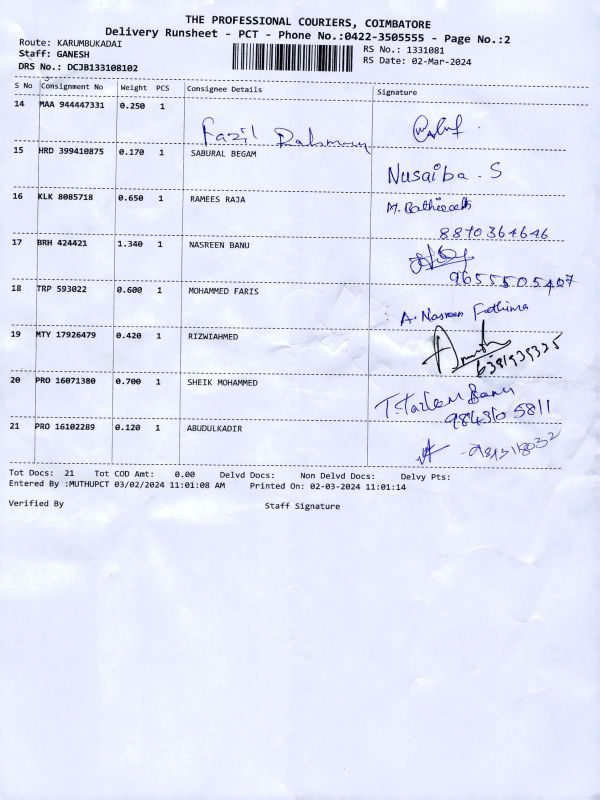 THE PROFESSIONAL COURIERS, COIMBATORE
Delivery Runsheet - PCT - Phone No.:0422-3505555 - Page No.:2
Route: KARUMBUKADAI RS No.: 1331081
Staff: GANESH RS Date: 02-Mar-2024
DRS No.: DCJB133108102
S No Consignment No Weight PCS Consignee Details Signature
14 MAA 944447331 0.250 1
Fazil Rahman
15 HRD 399410875 0.170 1 SABURAL BEGAM
Nusaiba. S
16 KLK 8085718 0.650 1 RAMEES RAJA
8870364646
17 BRH 424421 1.340 1 NASREEN BANU
9655505407
18 TRP 593022 0.600 1 MOHAMMED FARIS
A. Nasreen Fathima
19 MTY 17926479 0.420 1 RIZWIAHMED
6381939325
20 PRO 16071380 0.700 1 SHEIK MOHAMMED
T. Tazleem Banu
9843105811
21 PRO 16102289 0.120 1 ABUDULKADIR
Tot Docs: 21 Tot COD Amt: 0.00 Delvd Docs: Non Delvd Docs: Delvy Pts:
Entered By :MUTHUPCT 03/02/2024 11:01:08 AM Printed On: 02-03-2024 11:01:14
Verified By Staff Signature